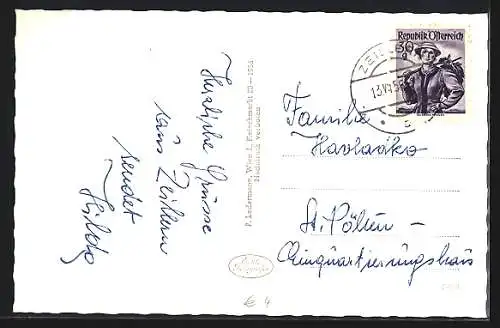 Herzliche Grüsse
aus Zeillern
sendet
Hilda
P. Ledermann, Wien I, Fleischmarkt 20 — 1954
Nachdruck verboten
Republik Österreich
30 g
ZEILLERN
Familie
Havladko
St. Pölten -
Einquartierungshaus
€ 4